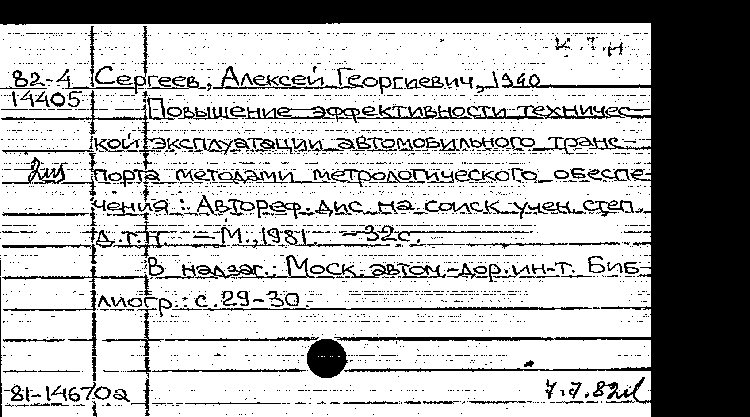 К.Т.Н
82-4 Сергеев, Алексей Георгиевич, 1940
14405 Повышение эффективности техничес-
кой эксплуатации автомобильного транс-
порта методами метрологического обеспе-
чения: Автореф. дис. на соиск учен. степ.
д.т.н. — М., 1981. — 32с.
В надзаг.: Моск. автом.-дор. ин-т. Биб-
лиогр.: с. 29-30.
81-14670а 7.7.82